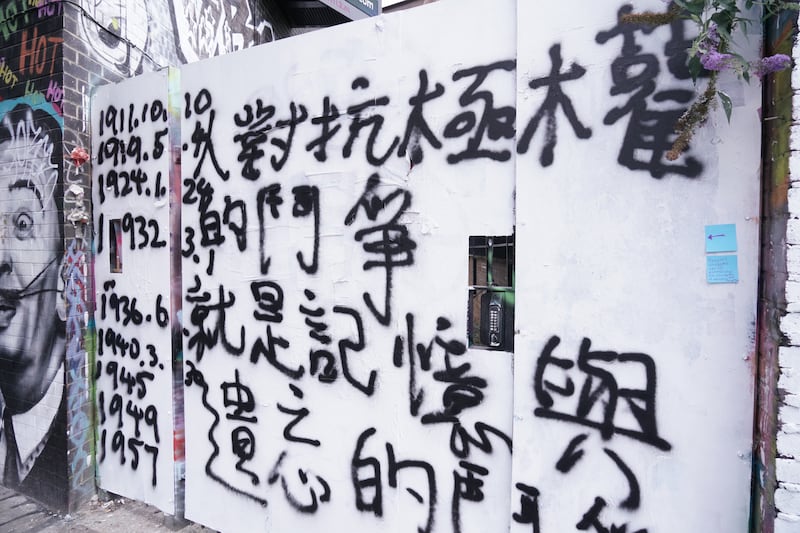 HOT
HOT
HOT
1911.10.10
1919.5.
1924.1.2
1932.3.1
1936.6.
1940.3.30
1945
1949
1957
人對抗極權
的鬥爭
就是記憶與
遺忘的鬥